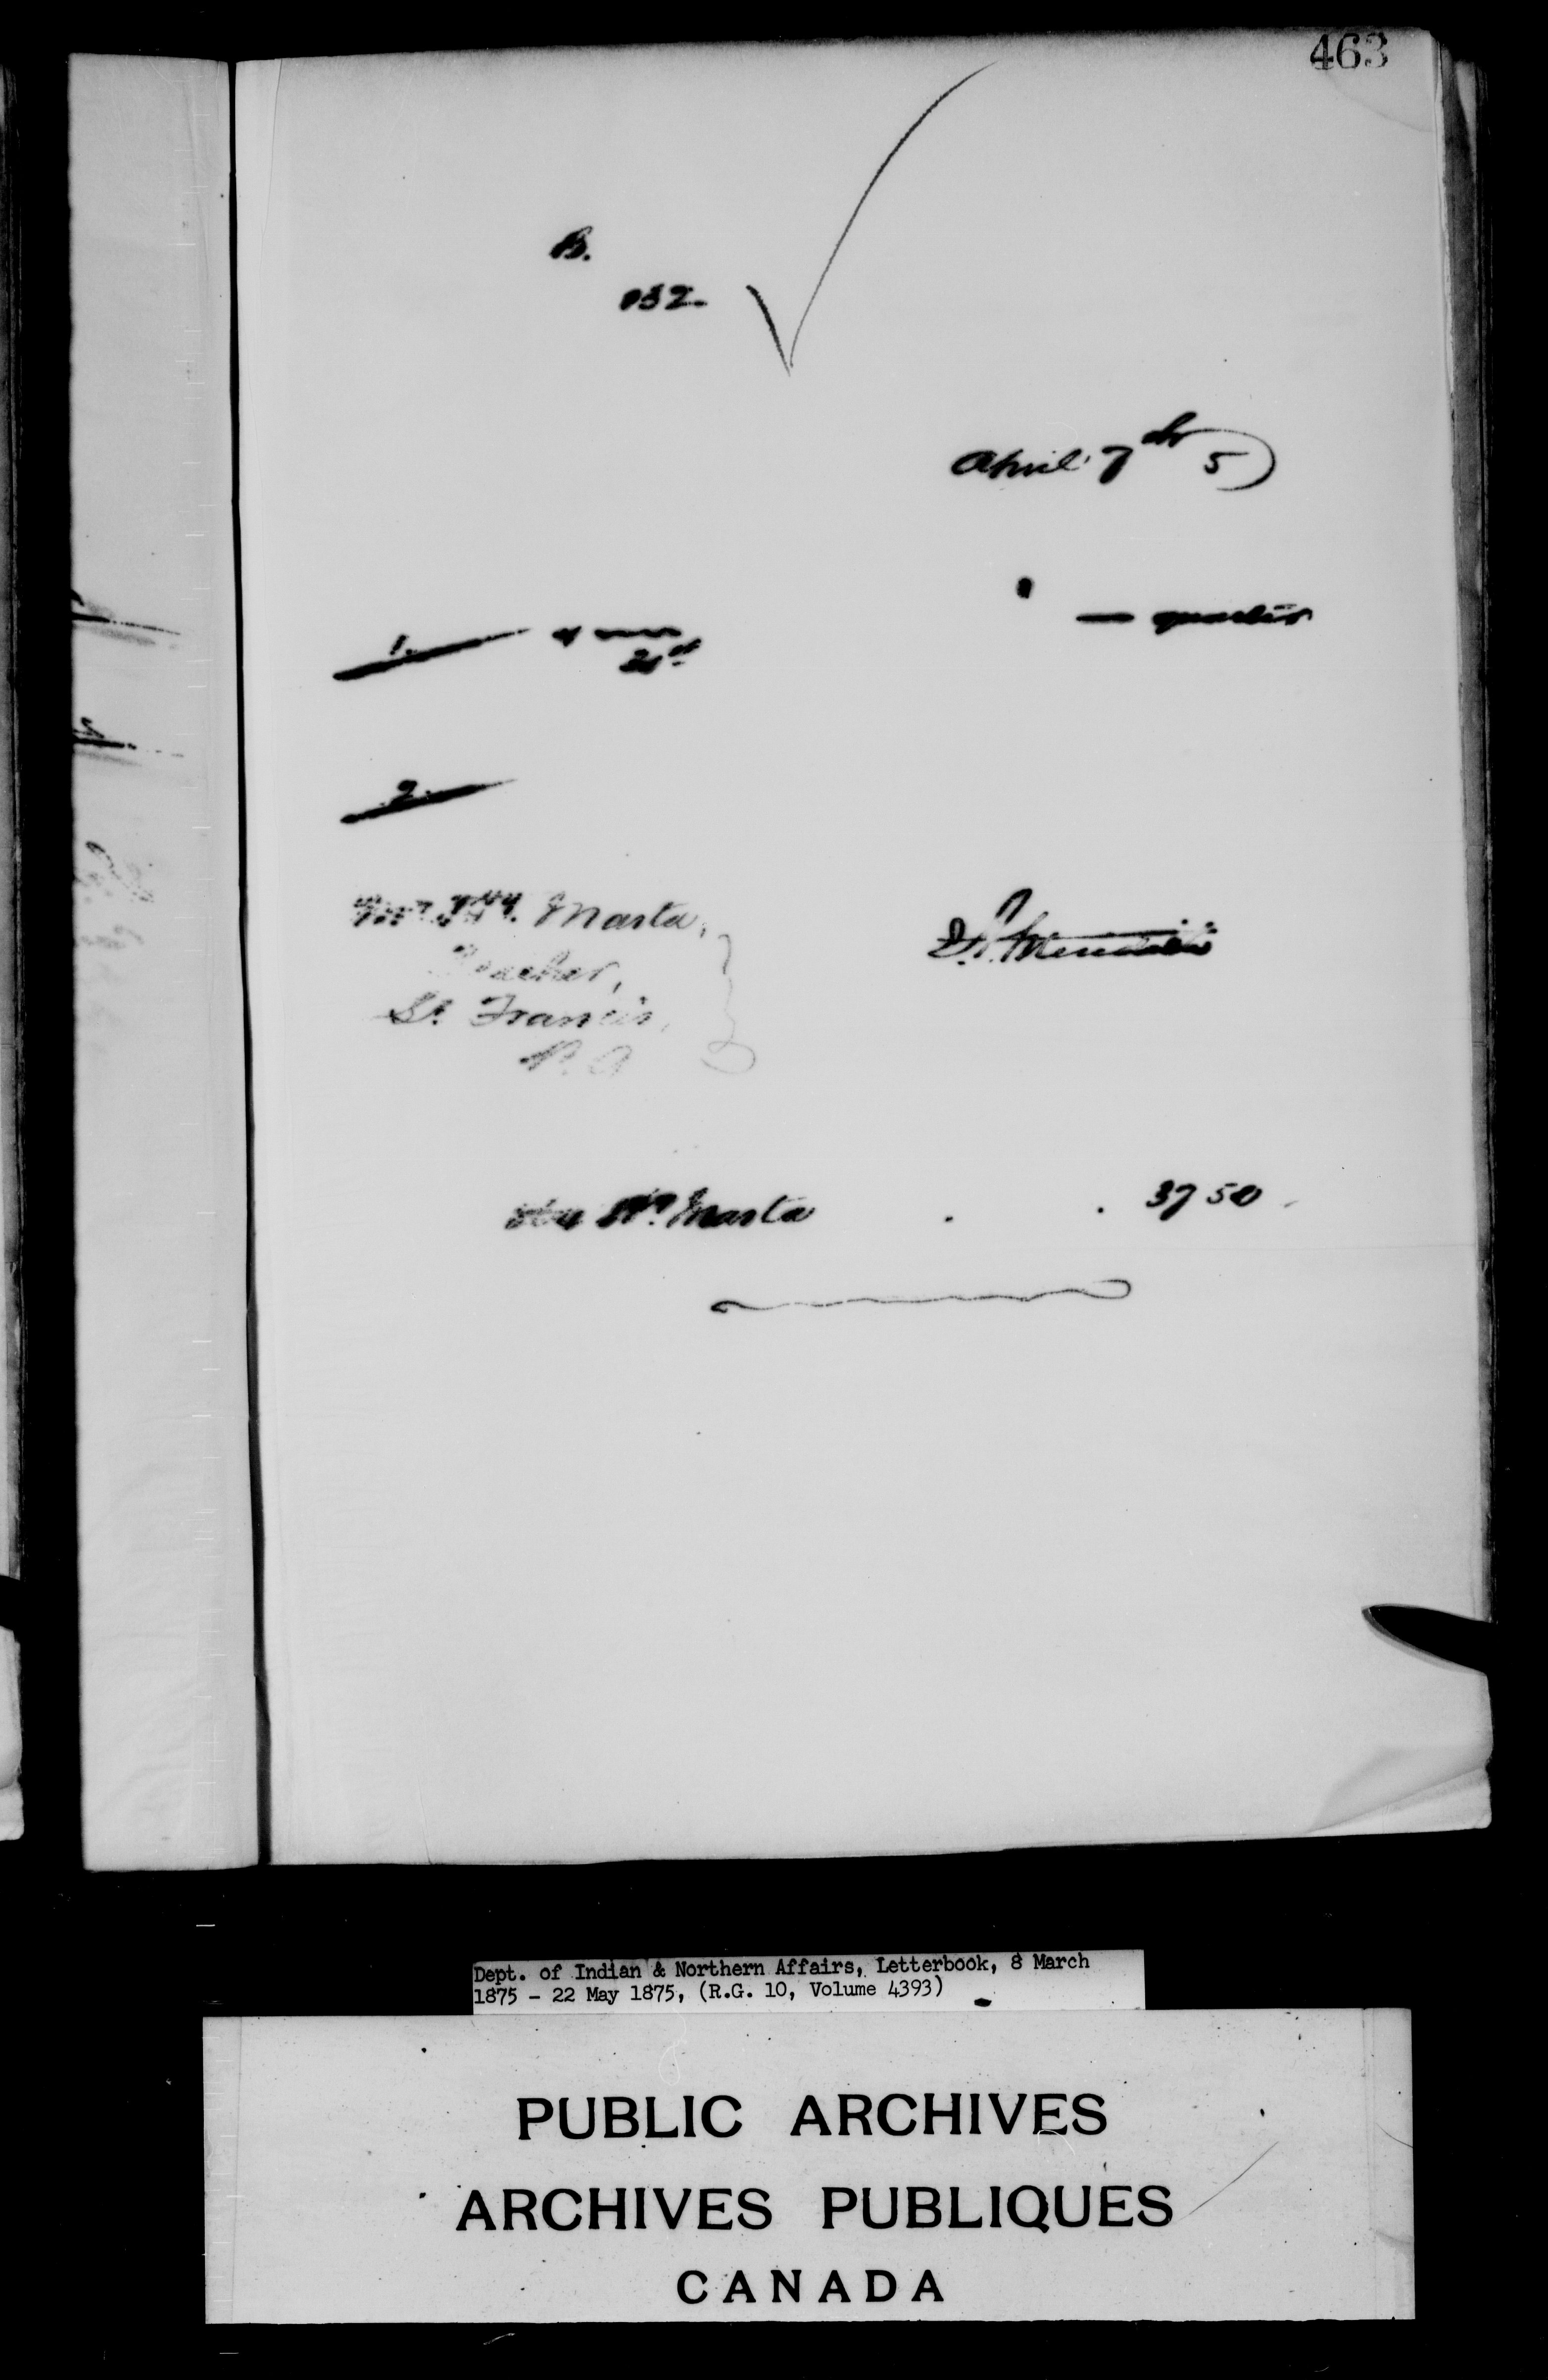 463
B.
032
April 7th 5
— quarter
1.
31st
2.
Masta,
Teacher,
St. Francis,
P. Q
Masta . . 37 50
Dept. of Indian & Northern Affairs, Letterbook, 8 March
1875 - 22 May 1875, (R.G. 10, Volume 4393)
PUBLIC ARCHIVES
ARCHIVES PUBLIQUES
CANADA